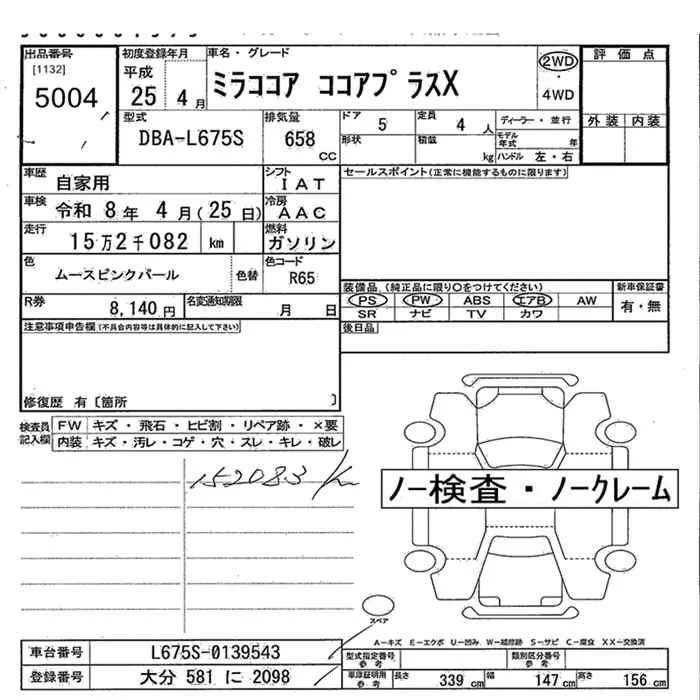 出品番号
[1132]
5004
初度登録年月
平成
25 4月
車名・グレード
ミラココア ココアプラスX
2WD
・
4WD
評価点
外装 内装
型式
DBA-L675S
排気量
658
CC
ドア
5
定員
4 人
ディーラー・並行
形状
積載
kg
モデル年式 年
ハンドル 左・右
車歴
自家用
シフト
IAT
車検
令和 8年 4月(25日)
冷房
AAC
走行
15万2千082 km
燃料
ガソリン
色
ムースピンクパール
色替
色コード
R65
R券
8,140円
名変通知期限
月 日
セールスポイント(正常に機能するものに限ります)
装備品(純正品に限り○をつけてください)
PS PW ABS エアB AW
SR ナビ TV カワ
新車保証書
有・無
後日品
注意事項申告欄(不具合内容等は具体的に記入して下さい)
修復歴 有〔箇所 〕
検査員記入欄
FW キズ・飛石・ヒビ割・リペア跡・×要
内装 キズ・汚レ・コゲ・穴・スレ・キレ・破レ
152083 km
ノー検査・ノークレーム
スペア
A-キズ E-エクボ U-凹み W-補修跡 S-サビ C-腐食 XX-交換済
車台番号
L675S-0139543
登録番号
大分 581 に 2098
型式指定番号
参考
類別区分番号
参考
車庫証明用
参考
長さ 339 cm
幅 147 cm
高さ 156 cm